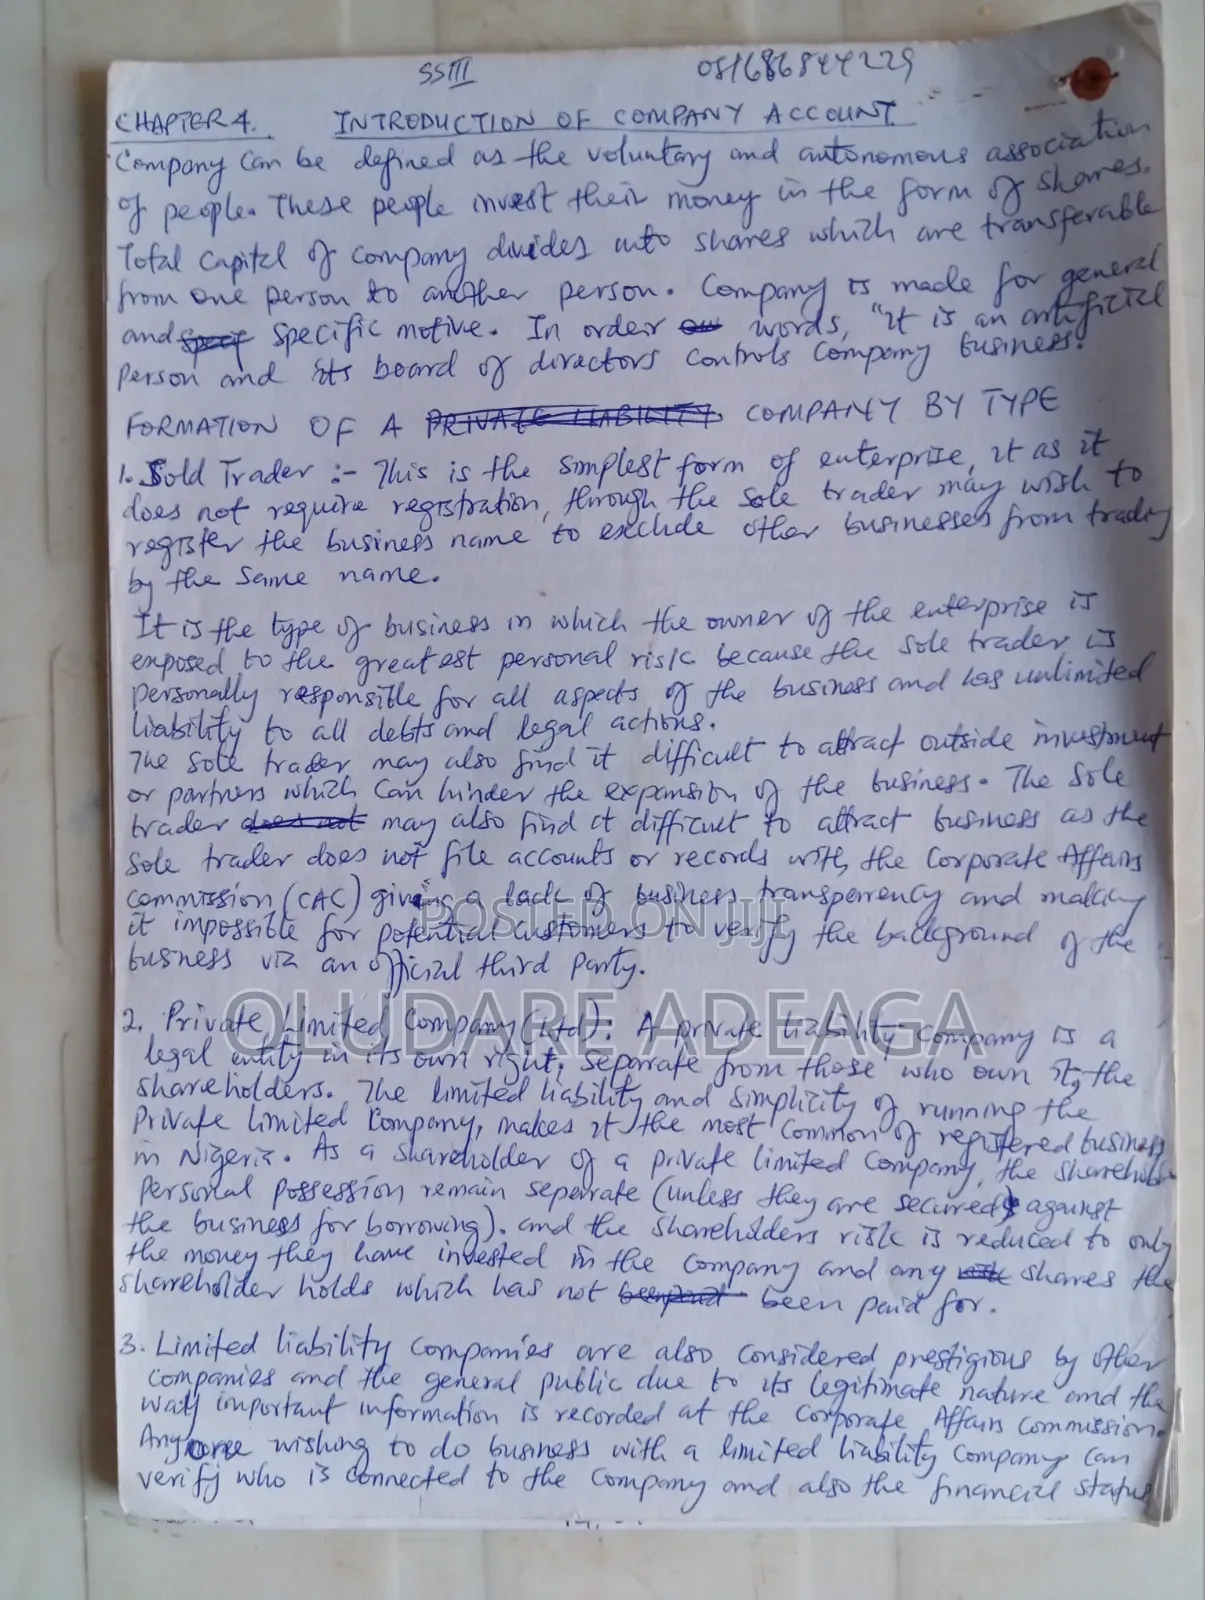 SSIII 081686844229
CHAPTER 4. INTRODUCTION OF COMPANY ACCOUNT
Company can be defined as the voluntary and autonomous association
of people. These people invest their money in the form of shares.
Total capital of company divides into shares which are transferable
from one person to another person. Company is made for general
and specific motive. In order words, "it is an artificial
person and its board of directors controls company business.
FORMATION OF A PRIVATE LIABILITY COMPANY BY TYPE
1. Sold Trader :- This is the simplest form of enterprise, it as it
does not require registration, through the sole trader may wish to
register the business name to exclude other businesses from trading
by the same name.
It is the type of business in which the owner of the enterprise is
exposed to the greatest personal risk because the sole trader is
personally responsible for all aspects of the business and has unlimited
liability to all debts and legal actions.
The sole trader may also find it difficult to attract outside investment
or partners which can hinder the expansion of the business. The sole
trader does not may also find it difficult to attract business as the
sole trader does not file accounts or records with the Corporate Affairs
commission (CAC) giving a lack of business transparency and making
it impossible for potential customers to verify the background of the
business via an official third party.
POSTED ON JIJI
OLUDARE ADEAGA
2. Private Limited Company (Ltd): A private liability company is a
legal entity in its own right, separate from those who own it, the
shareholders. The limited liability and simplicity of running the
Private Limited Company, makes it the most common of registered business
in Nigeria. As a shareholder of a private limited company, the shareholder
personal possession remain separate (unless they are secured against
the business for borrowing). and the shareholders risk is reduced to only
the money they have invested in the company and any shares the
shareholder holds which has not been paid for.
3. Limited liability companies are also considered prestigious by other
companies and the general public due to its legitimate nature and the
way important information is recorded at the Corporate Affairs Commission.
Anyone wishing to do business with a limited liability company can
verify who is connected to the company and also the financial status